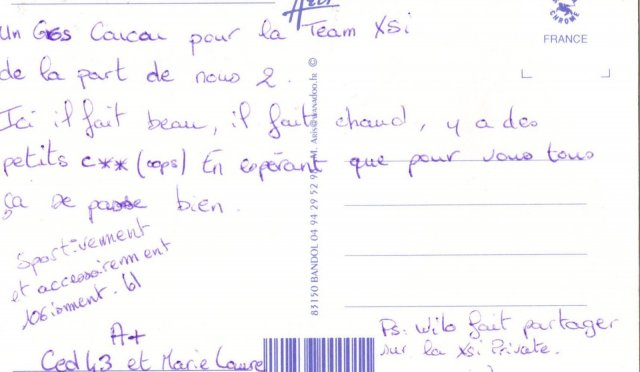 Un Gros Coucou pour la Team XSi
de la part de nous 2.
Ici il fait beau, il fait chaud, y a des
petits c** (oops) En espérant que pour vous tous
ça se passe bien.
Sportivement
et accessoirement
A+
Ced43 et Marie Laure
Ps: Wilo fait partager
sur la XSi Private.
FRANCE
CHROME
83150 BANDOL 04 94 29 52 9 M. Aris@wanadoo.fr ©